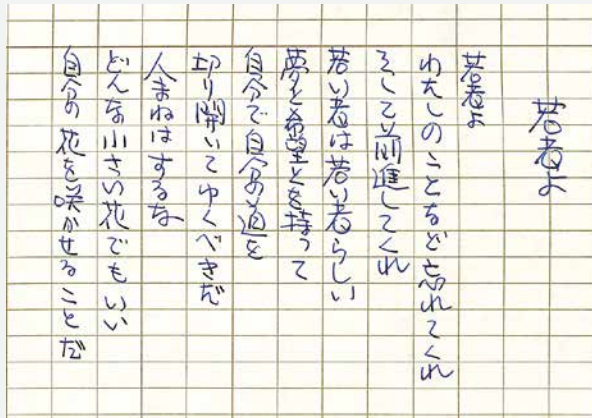 若者よ
若者よ
わたしのことなど忘れてくれ
そして前進してくれ
若い者は若い者らしい
夢と希望とを持って
自分で自分の道を
切り開いてゆくべきだ
人まねはするな
どんな小さい花でもいい
自分の花を咲かせることだ